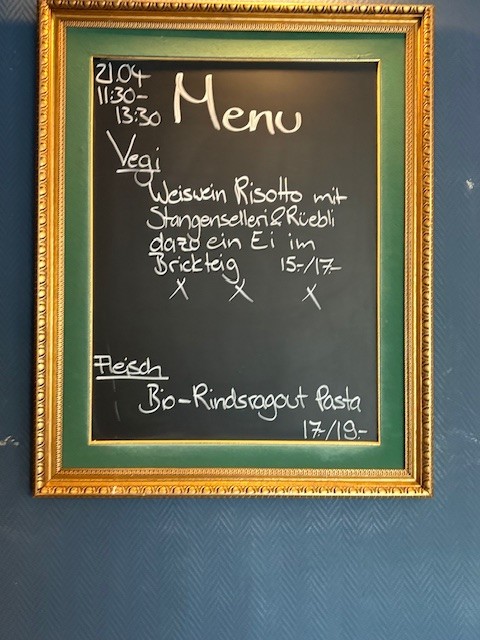 21.04
11:30-
13:30
Menu
Vegi
Weiswein Risotto mit
Stangenselleri & Rüebli
dazo ein Ei im
Brickteig 15.-/17.-
X X X
Fleisch
Bio-Rindsragout Pasta
17.-/19.-